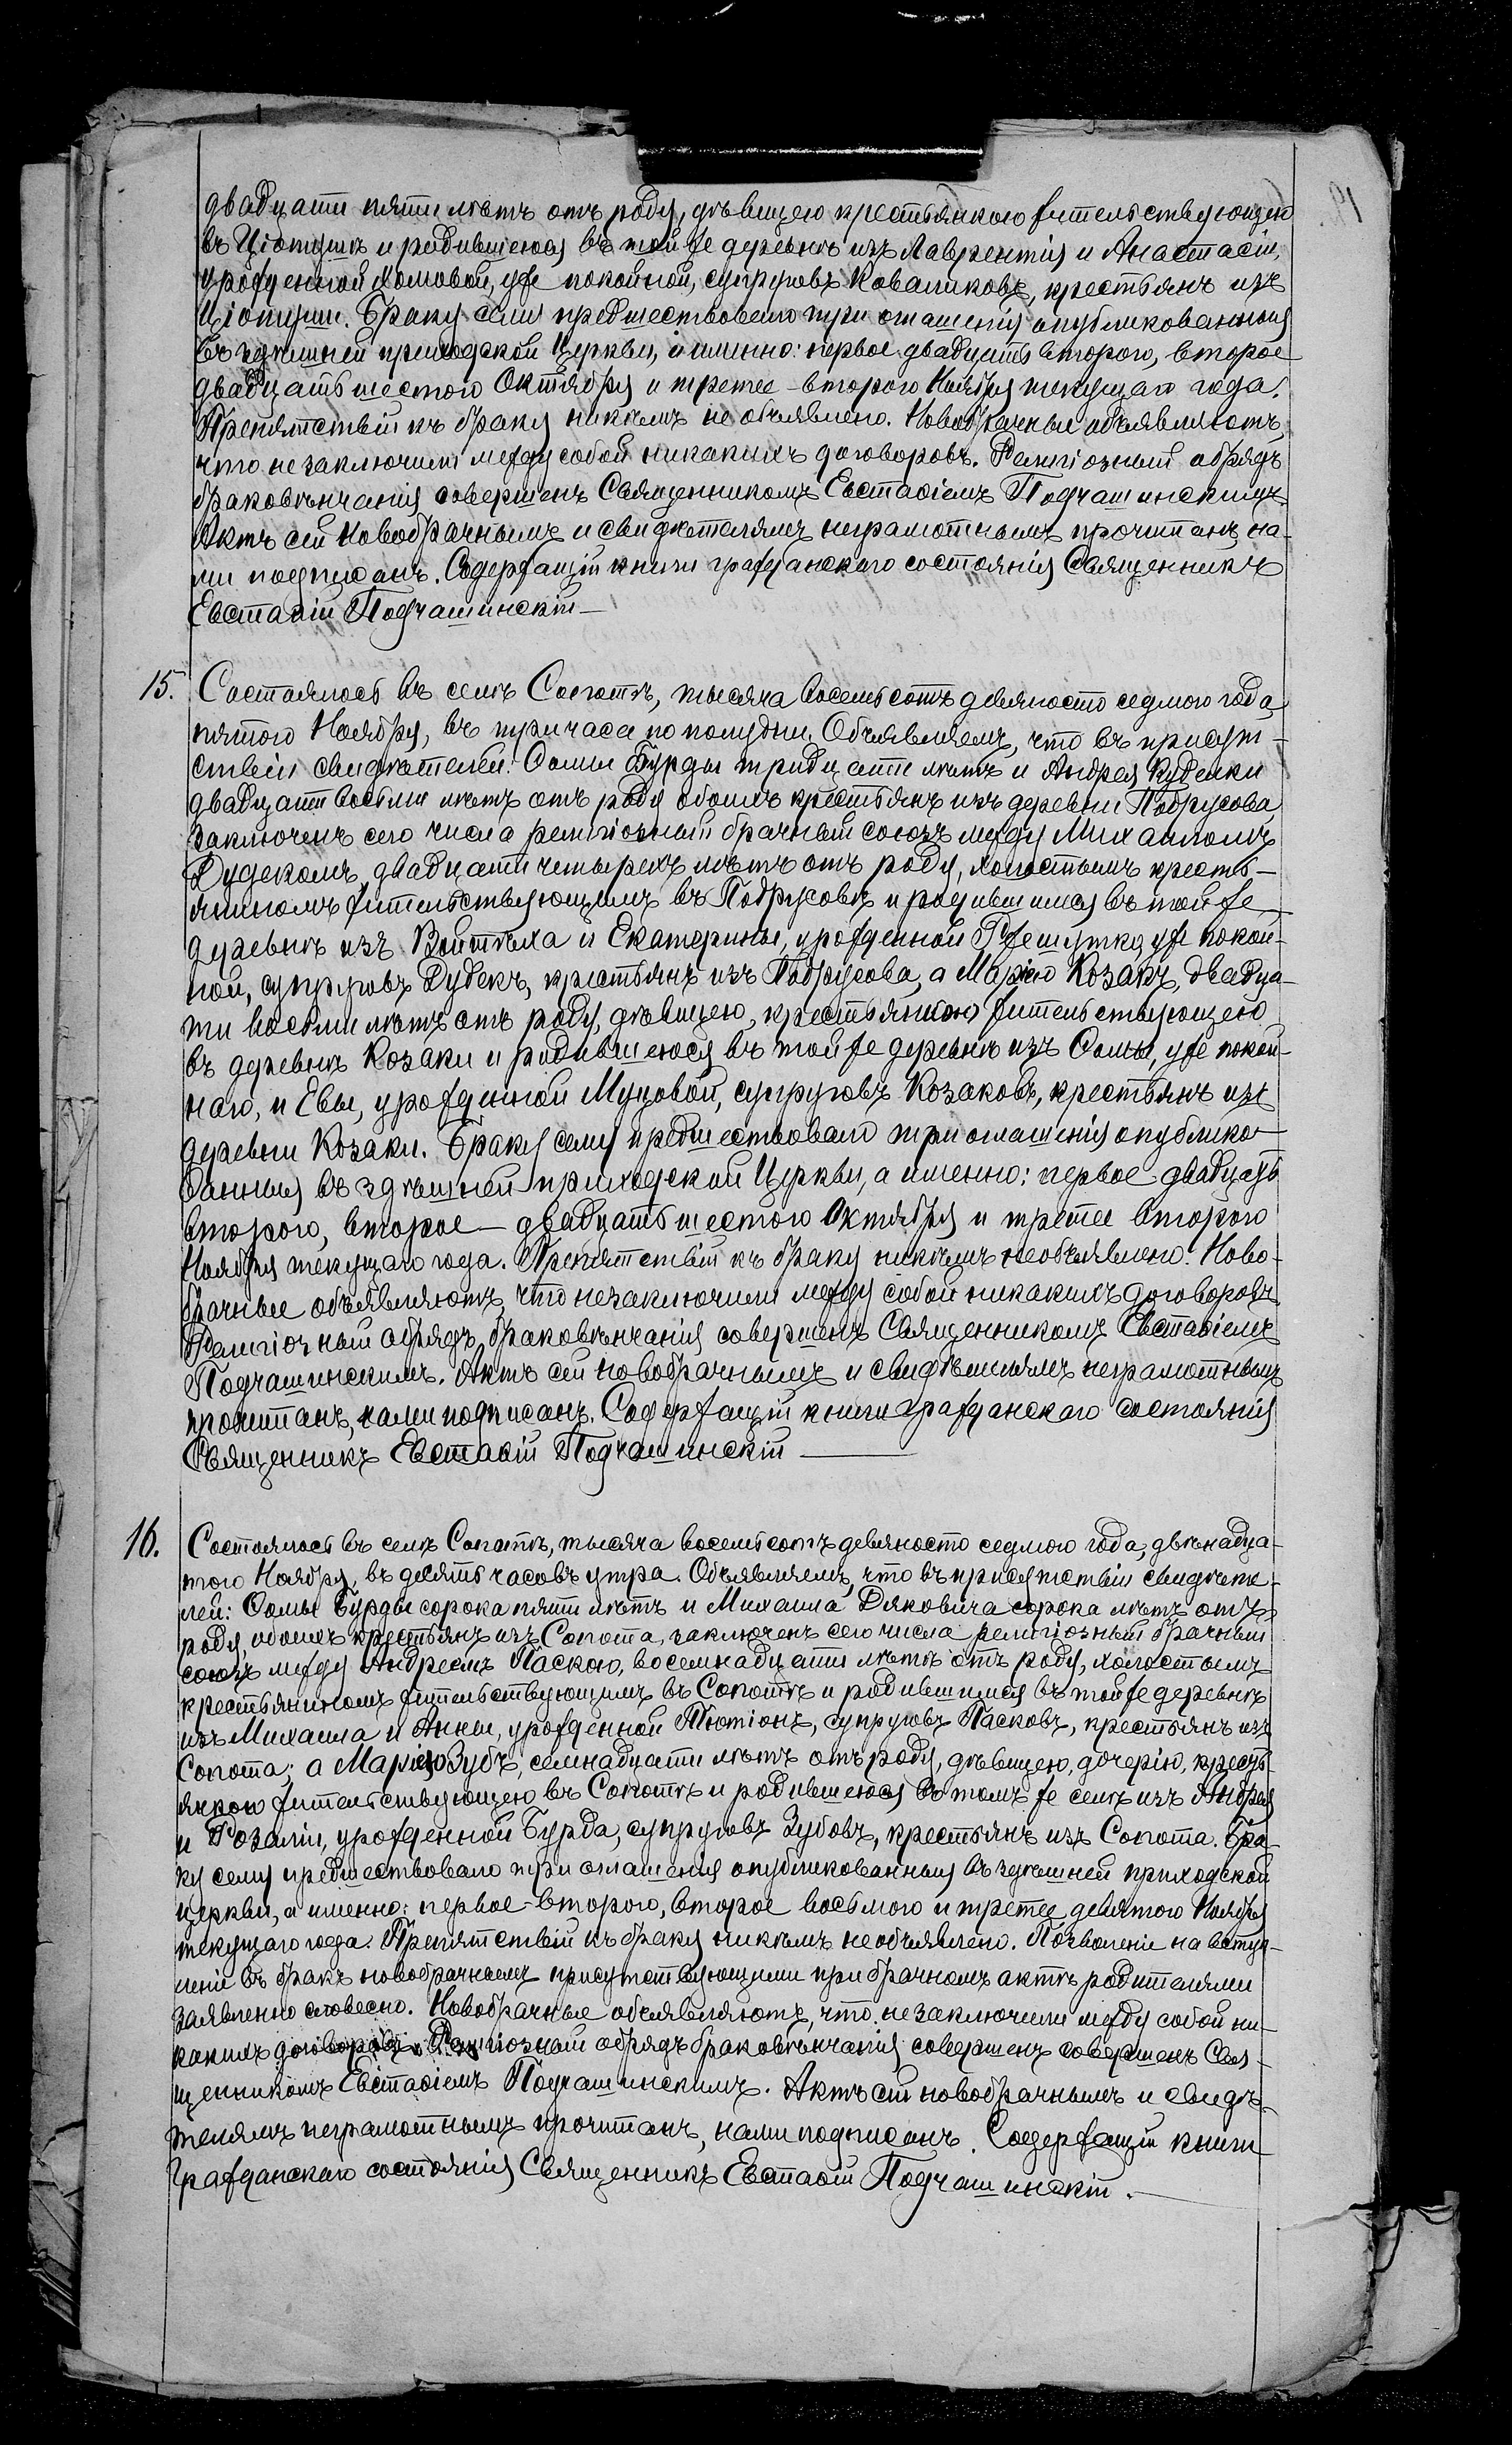 двадцати пяти лѣтъ отъ роду, дѣвицею крестьянкою жительствующею
въ Ціотушѣ и родившеюся въ той же деревнѣ изъ Лаврентія и Анастасіи,
урожденной Хомовой, уже покойной, супруговъ Коваликовъ, крестьянъ изъ
Ціотуши. Браку сему предшествовало три оглашенія опубликованныя
въ здѣшней приходской Церкви, а именно: первое двадцать второго, второе
двадцать шестого Октября и третее – второго Ноября текущаго года.
Препятствій къ браку никѣмъ не объявлено. Новобрачные объявляютъ,
что не заключили между собой никакихъ договоровъ. Религіозный обрядъ
браковѣнчанія совершенъ Священникомъ Евстаѳіемъ Подчашинскимъ.
Актъ сей Новобрачнымъ и свидѣтелямъ неграмотнымъ прочитанъ, на-
ми подписанъ. Содержащій книги гражданскаго состоянія Священникъ
Евстаѳій Подчашинскій –
15. Состоялось въ селѣ Сопотѣ, тысяча восемьсотъ девяносто седмого года,
пятого Ноября, въ три часа по полудни. Объявляемъ, что въ присут-
ствіи свидѣтелей: Ѳомы Бурды тридцати лѣтъ и Андрея Куделки
двадцати восьми лѣтъ отъ роду обоихъ крестьянъ изъ деревни Подрусова
заключенъ сего числа религіозный брачный союзъ между Михаиломъ
Дудекомъ, двадцати четырехъ лѣтъ отъ роду, холостымъ кресть-
яниномъ жительствующимъ въ Подрусовѣ и родившимся въ той же
деревнѣ изъ Войтѣха и Екатерины, урожденной Ржешутко уже покой-
ной, супруговъ Дудекъ, крестьянъ изъ Подрусова, а Маріею Козакъ, двадца-
ти восьми лѣтъ отъ роду, дѣвицею, крестьянкою жительствующею
въ деревнѣ Козаки и родившеюся въ той же деревнѣ изъ Ѳомы, уже покой-
наго, и Евы, урожденной Муцовой, супруговъ Козаковъ, крестьянъ изъ
деревни Козаки. Браку сему предшествовало три оглашенія опублико-
ванныя въ здѣшней приходской Церкви, а именно: первое двадцать
второго, второе – двадцать шестого Октября и третее второго
Ноября текущаго года. Препятствій къ браку никѣмъ необъявлено. Ново-
брачные объявляютъ, что незаключили между собой никакихъ договоровъ.
Религіозный обрядъ браковѣнчанія совершенъ Священникомъ Евстаѳіемъ
Подчашинскимъ. Актъ сей новобрачнымъ и свидѣтелямъ неграмотнымъ
прочитанъ, нами подписанъ. Содержащій книги гражданскаго состоянія
Священникъ Евстаѳій Подчашинскій
16. Состоялось въ селѣ Сопотѣ, тысяча восемьсотъ девяносто седмого года, двѣнадца-
того Ноября, въ десять часовъ утра. Объявляемъ, что въ присутствіи свидѣте-
лей: Ѳомы Бурды сорока пяти лѣтъ и Михаила Дяковича сорока лѣтъ отъ
роду, обоихъ крестьянъ изъ Сопота, заключенъ сего числа религіозный брачный
союзъ между Андреемъ Паскою, восемнадцати лѣтъ отъ роду, холостымъ
крестьяниномъ жительствующимъ въ Сопотѣ и родившимся въ той же деревнѣ
изъ Михаила и Анны, урожденной Тютіонъ, супруговъ Пасковъ, крестьянъ изъ
Сопота; а Маріею Зубъ, семнадцати лѣтъ отъ роду, дѣвицею, дочерію, кресть-
янкою жительствующею въ Сопотѣ и родившеюся въ томъ же селѣ изъ Андрея
и Розаліи, урожденной Бурда, супруговъ Зубовъ, крестьянъ изъ Сопота. Бра-
ку сему предшествовало три оглашенія опубликованныя въ здѣшней приходской
церкви, а именно: первое – второго, второе восьмого и третее девятого Ноября
текущаго года. Препятствій къ браку никѣмъ необъявлено. Позволеніе на вступ-
леніе въ бракъ новобрачнымъ присутствующими при брачномъ актѣ родителями
заявленно словесно. Новобрачные объявляютъ, что незаключили между собой ни-
какихъ договоровъ. Религіозный обрядъ браковѣнчанія совершенъ совершенъ Свя-
щенникомъ Евстаѳіемъ Подчашинскимъ. Актъ сей новобрачнымъ и свидѣ-
телямъ неграмотнымъ прочитанъ, нами подписанъ. Содержащій книги
Гражданскаго состоянія Священникъ Евстаѳій Подчашинскій.